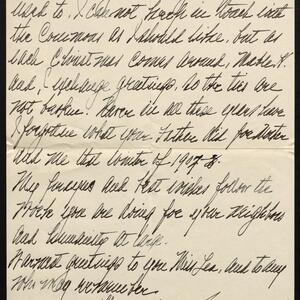 used to. I do not keep in touch with
the Commons as I should like, but as
each Christmas comes around, Mabel H.
and I exchange greetings. So the ties are
not broken. Never in all these years have
I forgotten what your Father did for
and me that winter of 1907-8.
My prayers and best wishes follow the
work you are doing for your neighbors
and humanity at large.
Warmest greetings to you Miss Lea, and to any
who may remember